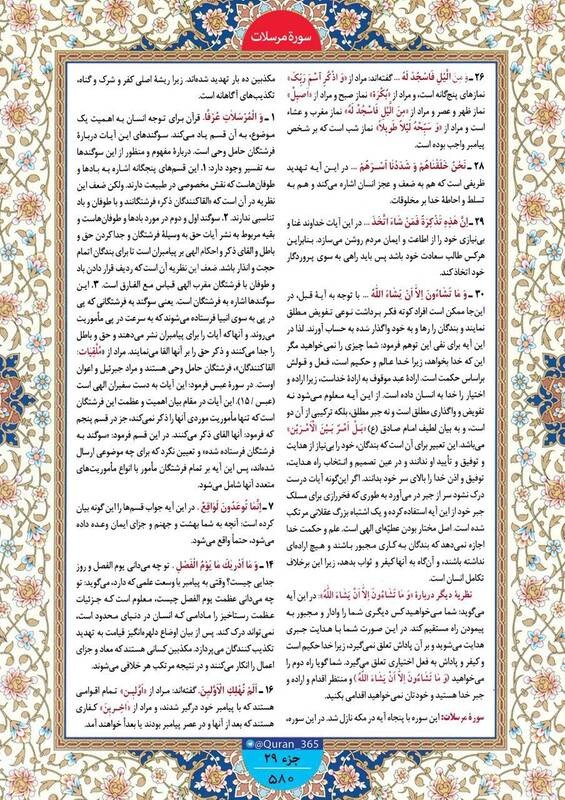 سورة مرسلات
۲۶ ـ وَ مِنَ الَّیْلِ فَاسْجُدْ لَهُ ... گفته‌اند: مراد از «وَ اذْكُرِ اسْمَ رَبِّكَ»
نمازهای پنج‌گانه است، و مراد از «بُكْرَة» نماز صبح و مراد از «اَصیل»
نماز ظهر و عصر و مراد از «مِنَ الَّیْلِ فَاسْجُدْ لَهُ» نماز مغرب و عشاء
است و مراد از «وَ سَبِّحْهُ لَیْلاً طَویلاً» نماز شب است که بر شخص
پیامبر واجب بوده است.
۲۸ ـ نَحْنُ خَلَقْنَاهُمْ وَ شَدَدْنَا أَسْرَهُمْ ... در این آیه تهدید
ظریفی است که هم به ضعف و عجز انسان اشاره می‌کند و هم به
تسلط و احاطهٔ خدا بر مخلوقات.
۲۹ ـ إِنَّ هَذِهِ تَذْكِرَةٌ فَمَنْ شَاءَ اتَّخَذَ ... در این آیات خداوند غنا و
بی‌نیازی خود را از اطاعت و ایمان مردم روشن می‌سازد. بنابراین
هرکس طالب سعادت خود باشد پس باید راهی به سوی پروردگار
خود اتخاذ کند.
۳۰ ـ وَ مَا تَشَاءُونَ إِلاَّ أَنْ یَشَاءَ اللَّهُ ... با توجه به آیهٔ قبل، در
این‌جا ممکن است افراد کوته فکر برداشت نوعی تفویض مطلق
نمایند و بندگان را رها و به خود واگذار شده به حساب آورند. لذا در
این آیه برای نفی این توهم فرمود: شما چیزی را نمی‌خواهید مگر
این که خدا بخواهد، زیرا خدا عالم و حکیم است، فعل و قولش
براساس حکمت است. ارادهٔ عبد موقوف به ارادهٔ خداست، زیرا اراده و
اختیار را خدا به انسان داده است. از این آیه معلوم می‌شود نه
تفویض و واگذاری مطلق است و نه جبر مطلق، بلکه ترکیبی از آن دو
است، و به بیان لطیف امام صادق (ع) «بَلْ أَمْرٌ بَیْنَ الْأَمْرَیْنِ»
می‌باشد. این تعبیر برای آن است که بندگان، خود را بی‌نیاز از هدایت
و توفیق و تأیید او ندانند و در عین تصمیم و انتخاب راه هدایت،
توفیق و اذن خدا را بالای سر خود بدانند. اگر این‌گونه آیات درست
درک نشود سر از جبر در می‌آورد به طوری که فخررازی برای مسلک
جبر خود از این آیه استفاده کرده و یک اشتباه بزرگ عقلانی مرتکب
شده است. اصل مختار بودن عطیّه‌ای الهی است. علم و حکمت خدا
اجازه نمی‌دهد که بندگان به کاری مجبور باشند و هیچ اراده‌ای
نداشته باشند، و آن‌گاه به آنها کیفر و ثواب بدهد، زیرا این برخلاف
تکامل انسان است.
نظریهٔ دیگر دربارهٔ «وَ مَا تَشَاءُونَ إِلاَّ أَنْ یَشَاءَ اللَّهُ»: در این آیه
می‌گوید: شما می‌خواهید کس دیگری شما را وادار و مجبور به
پیمودن راه مستقیم کند. در این صورت شما با هدایت جبری
هدایت می‌شوید و بر آن پاداش تعلق نمی‌گیرد، زیرا خدا حکیم است
و کیفر و پاداش به فعل اختیاری تعلق می‌گیرد. شما گویا راه دوم را
می‌خواهید (وَ مَا تَشَاءُونَ إِلاَّ أَنْ یَشَاءَ اللَّهُ) و منتظر اقدام و اراده و
جبر خدا هستید و خودتان نمی‌خواهید اقدامی بکنید.
سورهٔ مرسلات: این سوره با پنجاه آیه در مکه نازل شد. در این سوره،
مکذبین ده بار تهدید شده‌اند. زیرا ریشهٔ اصلی کفر و شرک و گناه،
تکذیب‌های آگاهانه است.
۱ ـ وَ الْمُرْسَلاَتِ عُرْفًا. قرآن برای توجه انسان به اهمیت یک
موضوع، به آن قسم یاد می‌کند. سوگندهای این آیات دربارهٔ
فرشتگان حامل وحی است. دربارهٔ مفهوم و منظور از این سوگندها
سه تفسیر وجود دارد: ۱. این قسم‌های پنجگانه اشاره به بادها و
طوفان‌هاست که نقش مخصوصی در طبیعت دارند. ولکن ضعف این
نظریه در آن است که «القائکنندگان ذکر» فرشتگانند و با طوفان و باد
تناسبی ندارند. ۲. سوگند اول و دوم در مورد بادها و طوفان‌هاست و
بقیه مربوط به نشر آیات حق به وسیلهٔ فرشتگان و جدا کردن حق و
باطل و القای ذکر و احکام الهی بر پیامبران است تا برای بندگان اتمام
حجت و انذار باشد. ضعف این نظریه آن است که ردیف قرار دادن باد
و طوفان با فرشتگان مقرب الهی قیاس مع الفارق است. ۳. این
سوگندها اشاره به فرشتگان است. یعنی سوگند به فرشتگانی که پی
در پی به سوی انبیا فرستاده می‌شوند که به سرعت در پی مأموریت
می‌روند. و آنها که آیات را برای پیامبران نشر می‌دهند و حق و باطل
را جدا می‌کنند و ذکر حق را بر آنها القا می‌نمایند. مراد از «مُلْقِیَات:
القاکنندگان»، فرشتگان حامل وحی هستند و مراد جبرئیل و اعوان
اوست. در سورهٔ عبس فرمود: این آیات به دست سفیران الهی است
(عبس / ۱۵). این آیات در مقام بیان اهمیت و عظمت این فرشتگان
است که تنها مأموریت موردی آنها را ذکر نمی‌کند، جز در قسم پنجم
که فرمود: آنها القای ذکر می‌کنند. در این قسم فرمود: «سوگند به
فرشتگان فرستاده شده» و تعیین نکرد که برای چه موضوعی ارسال
شده‌اند، پس این آیه بر تمام فرشتگان مأمور با انواع مأموریت‌های
متعدد آنها شامل می‌شود.
۷ ـ إِنَّمَا تُوعَدُونَ لَوَاقِعٌ. در این آیه جواب قسم‌ها را این گونه بیان
کرده است: آنچه به شما بهشت و جهنم و جزای ایمان وعده داده
می‌شود، حتماً واقع می‌شود.
۱۴ ـ وَ مَا أَدْرَیكَ مَا یَوْمُ الْفَصْلِ. تو چه می‌دانی یوم الفصل و روز
جدایی چیست؟ وقتی به پیامبر با وسعت علمی که دارد، می‌گوید: تو
چه می‌دانی عظمت یوم الفصل چیست، معلوم است که جزئیات
عظمت رستاخیز را مادامی که انسان در دنیای محدود است،
نمی‌تواند درک کند. پس از بیان اوضاع دلهره‌انگیز قیامت به تهدید
تکذیب کنندگان می‌پردازد. مکذبین کسانی هستند که معاد و جزای
اعمال را انکار می‌کنند و در نتیجه مرتکب هر خلافی می‌شوند.
۱۶ ـ أَلَمْ نُهْلِكِ الْأَوَّلِینَ. گفته‌اند: مراد از «اَوَّلین» تمام اقوامی
هستند که با پیامبر خود درگیر شدند، و مراد از «آخِرین» کفاری
هستند که بعد از آنها و در عصر پیامبر بودند یا بعداً خواهند آمد.
@Quran_365
جزء ۲۹
۵۸۰